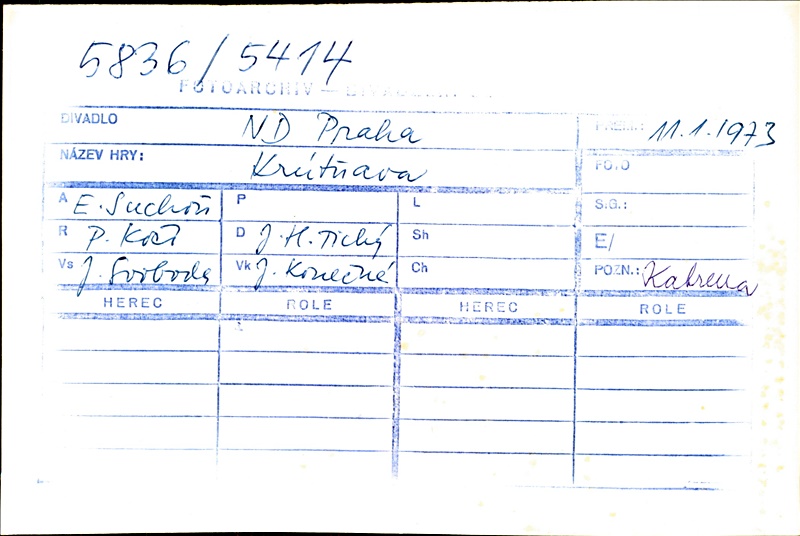 5836/5414
FOTOARCHIV —
DIVADLO ND Praha 11.1.1973
NÁZEV HRY: Krútňava FOTO
A E. Suchoň P L S.G.:
R P. Kočí D J. H. Tichý Sh E/
Vs J. Svoboda Vk J. Konečné Ch POZN.:
HEREC ROLE HEREC ROLE